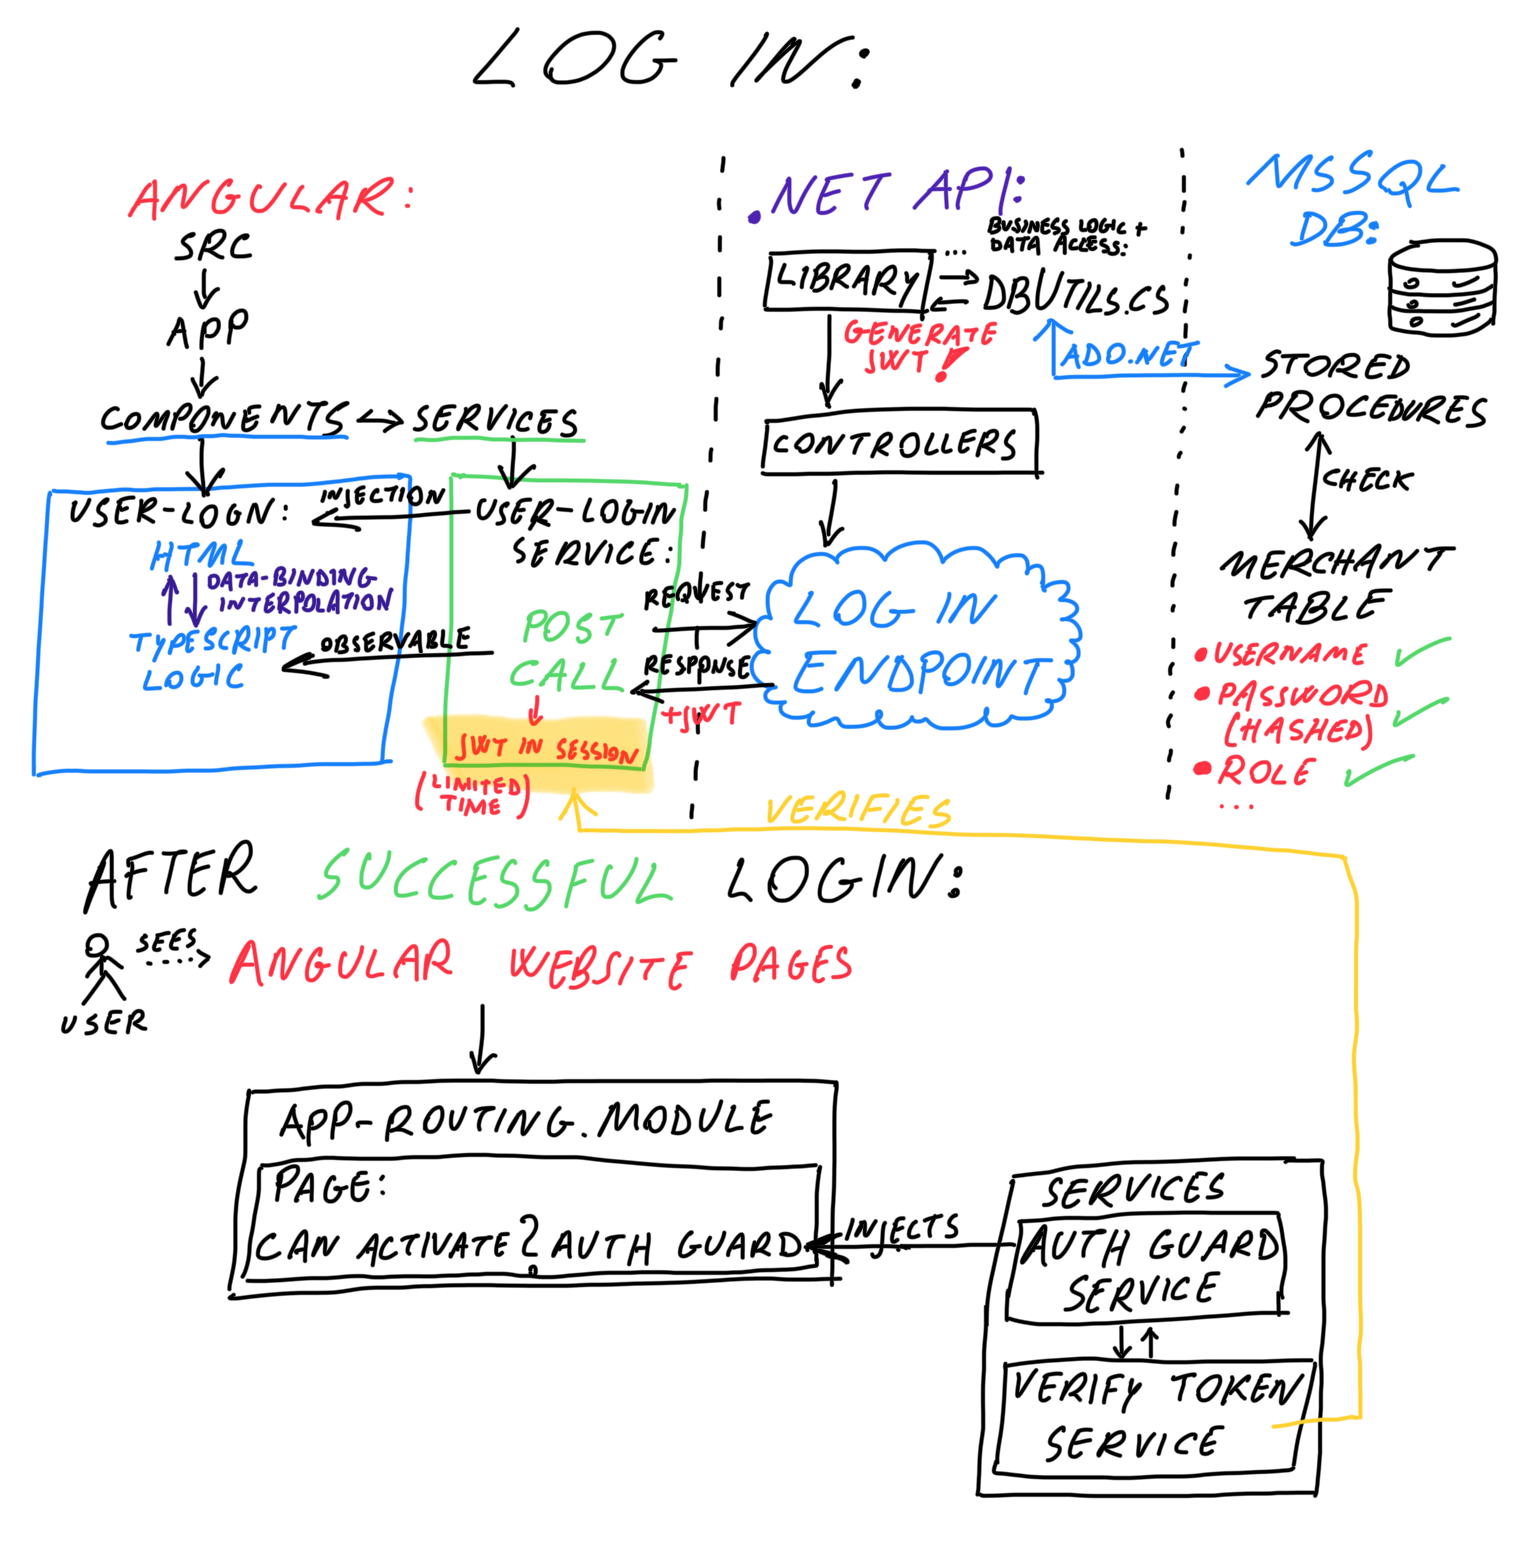 LOG IN:
ANGULAR:
SRC
APP
COMPONENTS
SERVICES
USER-LOGN:
INJECTION
HTML
DATA-BINDING
INTERPOLATION
TYPESCRIPT
LOGIC
OBSERVABLE
USER-LOGIN
SERVICE:
POST
CALL
JWT IN SESSION
(LIMITED
TIME)
REQUEST
RESPONSE
+JWT
.NET API:
LIBRARY
...
BUSINESS LOGIC +
DATA ACCESS:
DBUTILS.CS
GENERATE
JWT!
ADO.NET
CONTROLLERS
LOG IN
ENDPOINT
MSSQL
DB:
STORED
PROCEDURES
CHECK
MERCHANT
TABLE
• USERNAME ✓
• PASSWORD
(HASHED) ✓
• ROLE ✓
...
VERIFIES
AFTER SUCCESSFUL LOGIN:
USER
SEES
ANGULAR WEBSITE PAGES
APP-ROUTING.MODULE
PAGE:
CAN ACTIVATE? AUTH GUARD
INJECTS
SERVICES
AUTH GUARD
SERVICE
VERIFY TOKEN
SERVICE